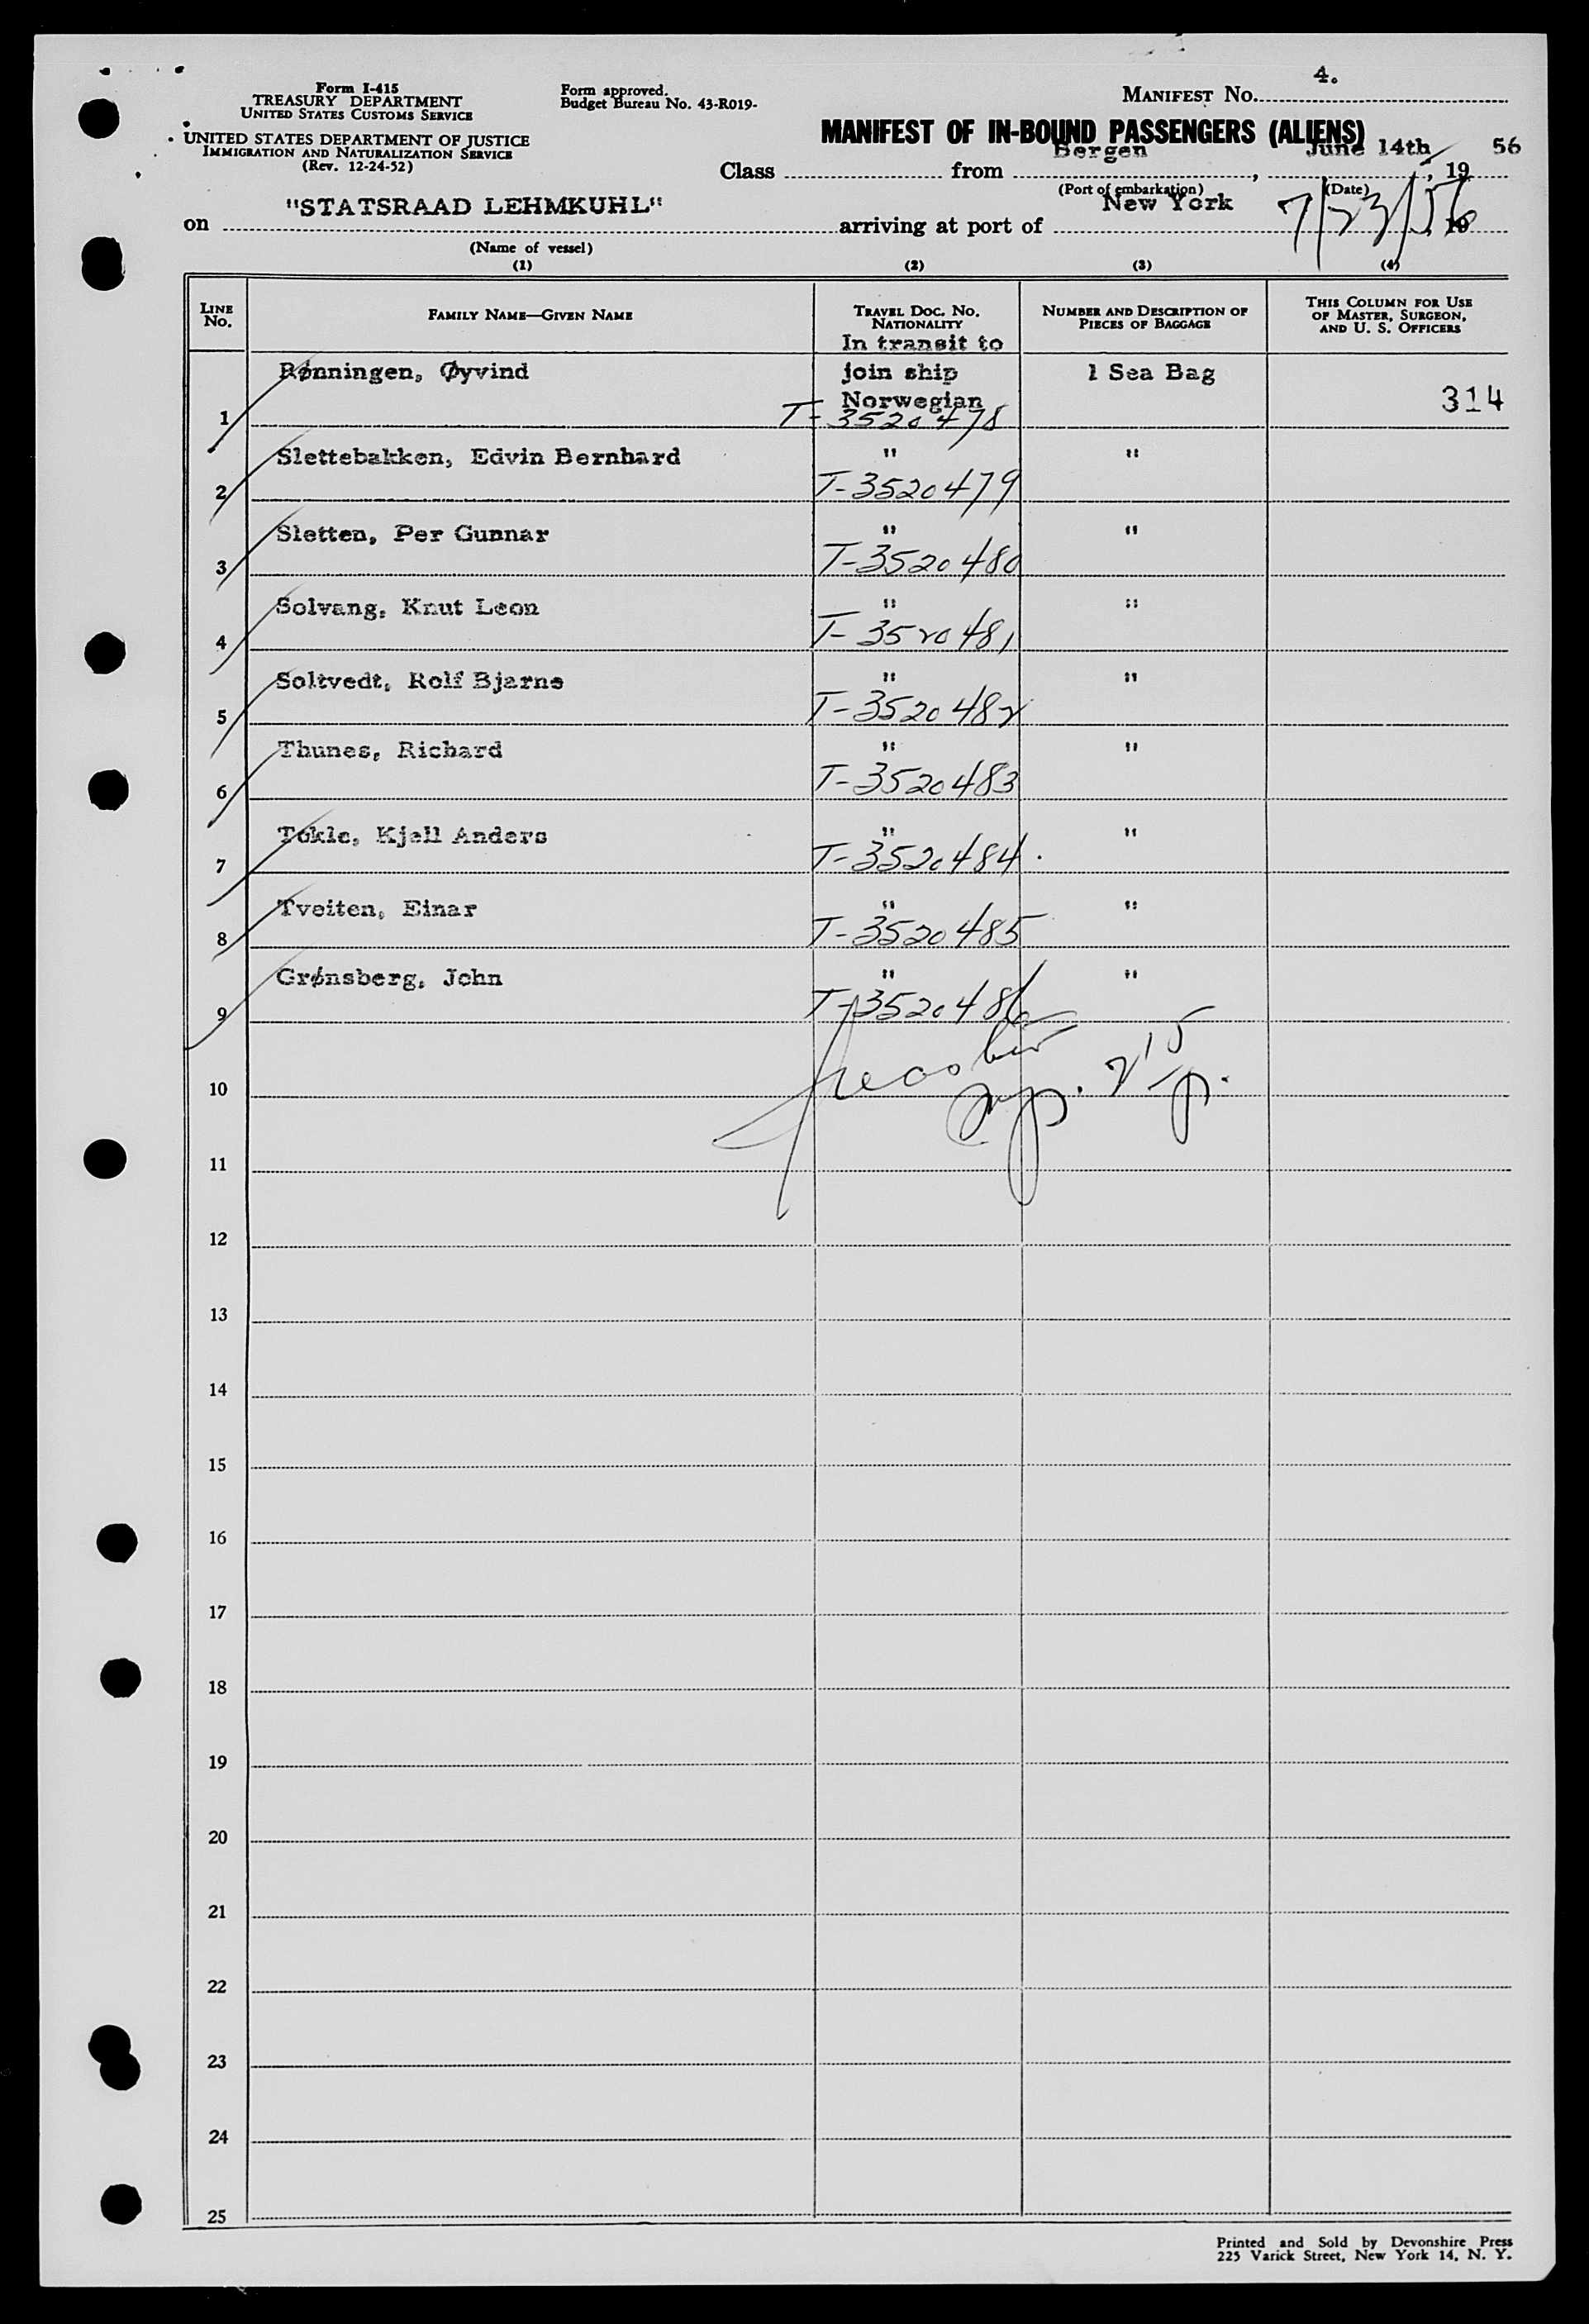 Form I-415
TREASURY DEPARTMENT
UNITED STATES CUSTOMS SERVICE
UNITED STATES DEPARTMENT OF JUSTICE
IMMIGRATION AND NATURALIZATION SERVICE
(Rev. 12-24-52)
Form approved.
Budget Bureau No. 43-R019-
4.
MANIFEST No.
MANIFEST OF IN-BOUND PASSENGERS (ALIENS)
Class from Bergen, June 14th, 19 56
(Port of embarkation) (Date)
on "STATSRAAD LEHMKUHL" arriving at port of New York 7/23/56, 19
(Name of vessel)
(1) (2) (3) (4)
LINE No. FAMILY NAME—GIVEN NAME TRAVEL DOC. NO. NATIONALITY NUMBER AND DESCRIPTION OF PIECES OF BAGGAGE THIS COLUMN FOR USE OF MASTER, SURGEON, AND U. S. OFFICERS
In transit to
Rønningen, Øyvind join ship 1 Sea Bag
Norwegian 314
1 T-3520478
Slettebakken, Edvin Bernhard " "
2 T-3520479
Sletten, Per Gunnar " "
3 T-3520480
Solvang, Knut Leon " "
4 T-3520481
Soltvedt, Rolf Bjarne " "
5 T-3520482
Thunes, Richard " "
6 T-3520483
Tokle, Kjell Anders " "
7 T-3520484
Tveiten, Einar " "
8 T-3520485
Grønsberg, John " "
9 T-3520486
10
11
12
13
14
15
16
17
18
19
20
21
22
23
24
25
Printed and Sold by Devonshire Press
225 Varick Street, New York 14, N. Y.